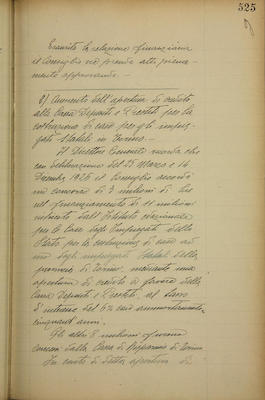 525
Esaurita la relazione finanziaria
il Consiglio ne prende atto piena-
mente approvando. -
8) Aumento dell'apertura di credito
alla Cassa Depositi e Prestiti per la
costruzione di case per gli impie-
gati statali in Torino. -
Il Direttore Generale ricorda che
con deliberazione del 25 Marzo e 14
Dicembre 1926 il Consiglio accordò
un concorso di 3 milioni di lire
nel finanziamento di 11 milioni
ottenuto dall'Istituto Nazionale
per le Case degli Impiegati dello
Stato per la costruzione di case ad
uso degli impiegati statali della
provincia di Torino, mediante una
apertura di credito a favore della
Cassa Depositi e Prestiti, al tasso
d'interesse del 6% con ammortamento
cinquant'anni.
Gli altri 8 milioni furono
concessi dalla Cassa di Risparmio di Torino
In conto di detta apertura di